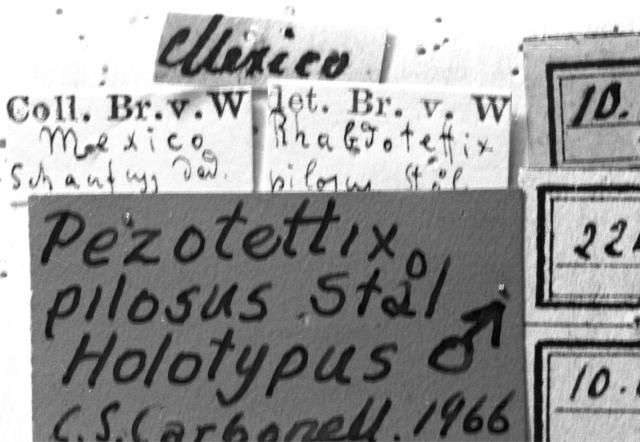 Mexico
Coll. Br. v. W
Mexico
ded.
det. Br. v. W
Rhabdotettix
pilosus Stål
Pezotettix
pilosus Stål
Holotypus ♂
C.S.Carbonell. 1966
10.
22
10.